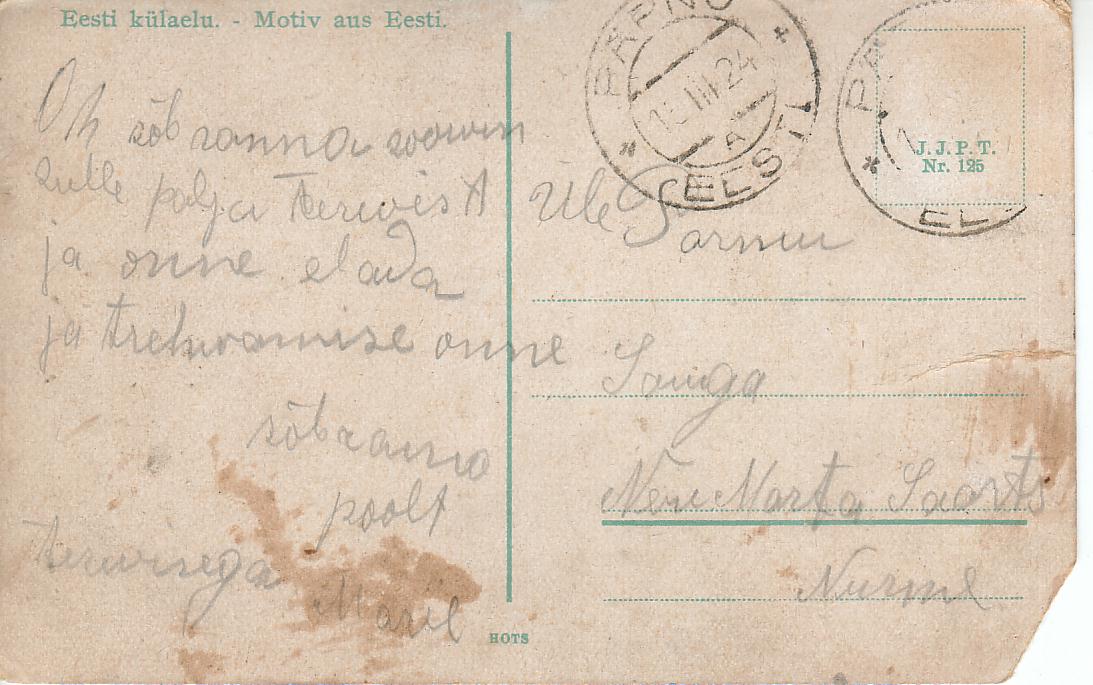 Eesti külaelu. - Motiv aus Eesti.
Oh sõbranna soowin
sulle palja terwist
ja onne elada
ja trehwamise onne
sõbranna
poolt
terwisega
PÄRNU
15.III.24
A
EESTI
J. J. P. T.
Nr. 125
Üle Pärnu
Sauga
Neiu Marta Saarts
Nurme
HOTS